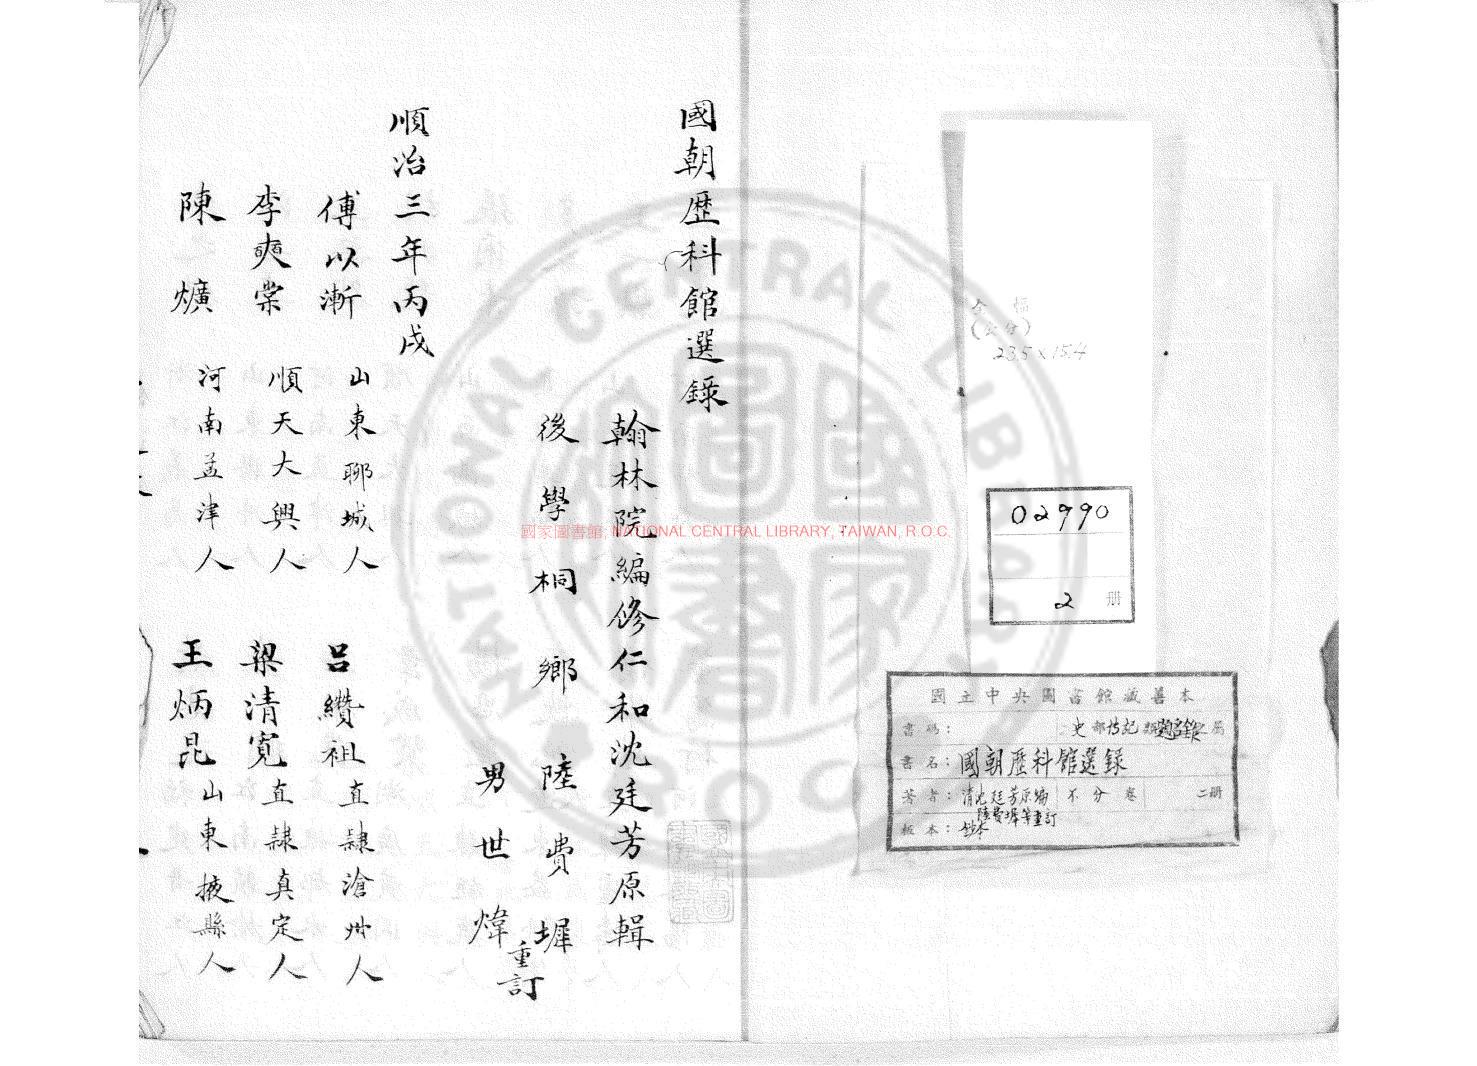 國朝歷科館選錄
翰林院編修仁和沈廷芳原輯
後學桐鄉陸費墀
男世煒
重訂
順治三年丙戌
傅以漸 山東聊城人
呂纘祖 直隸滄州人
李奭棠 順天大興人
梁清寬 直隸真定人
陳爌 河南孟津人
王炳昆 山東掖縣人
全幅
(公分)
23.5 x 15.4
02990
2 册
國立中央圖書館藏善本
書碼: 史部傳記類總錄之屬
書名: 國朝歷科館選錄
著者: 清沈廷芳原編 不分卷 二册
陸費墀等重訂
板本: 鈔本
國家圖書館, NATIONAL CENTRAL LIBRARY, TAIWAN, R.O.C.
NATIONAL CENTRAL LIBRARY
R.O.C.